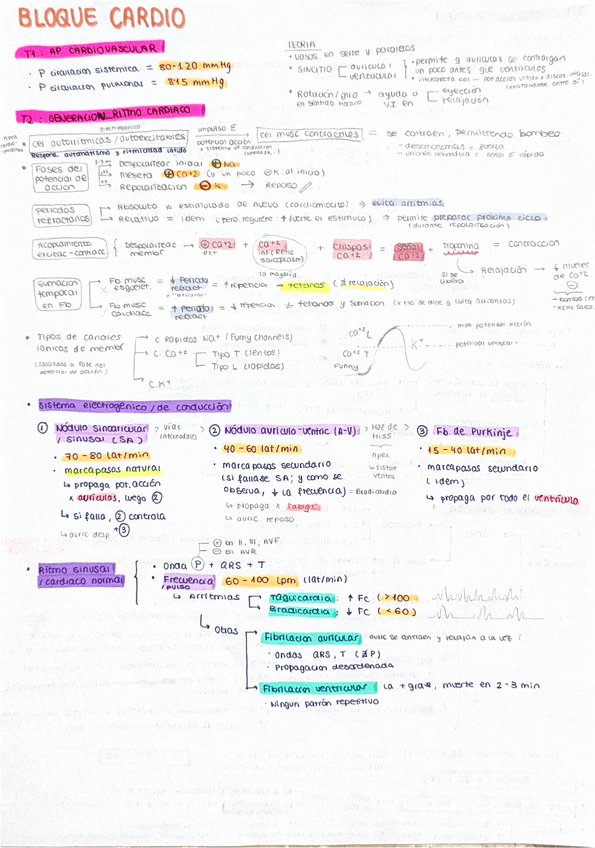 BLOQUE CARDIO
T1: AP CARDIOVASCULAR
· P circulación sistémica = 80-120 mmHg
· P circulación pulmonar = 8-15 mmHg
TEORÍA
• vasos en serie y paralelos
• SINCITIO auricular
ventricular
• permite q aurículas se contraigan
un poco antes que ventrículos
• Rotación/giro → ayuda a eyección
en sentido horario VI en relajación
T2: GENERACIÓN RITMO CARDIACO
electrogénico
cel autorrítmicas/autoexcitables
Respons. automatismo y ritmicidad latido
impulso E
potencial acción
x sistema de conducción
cel musc contráctiles = se contraen, permitiendo bombeo
Fases del
potencial de
acción
Despolarizar inicial ⊕ Na
Meseta ⊕ Ca+2 (y un poco ⊖ K al inicio)
Repolarización ⊖ K → Reposo
Periodos
refractarios
Absoluto = estimulado de nuevo (cardiomiocito) ⇒ evita arritmias
Relativo = idem (pero requiere ↑ fuerte el estímulo) ⇒ permite preparar próximo ciclo
(durante repolarización)
Acoplamiento
excitac-contracc
Despolarizac
membr
→ ⊕ Ca+2
ext
+ Ca+2
int (Retíc
sarcoplasm)
+ chispas
Ca+2
= señal
Ca+2
+ Troponina = contracción
la mayoría
si se
→ Relajación → ↓ niveles
de Ca+2
⊖
Sumación
temporal
en Fb
Fb musc
esquelet.
= ↓ Periodo
refract
= ↑ repetición → tetanos (∄ relajación)
Fb musc
cardiaca
= ↑ Periodo
refract
= ↓ repetición ≠ tetanos y sumación
• Tipos de canales
iónicos de membr
potencial de acción)
C. Rápidos Na+ (Funny channels)
C. Ca+2 Tipo T (lentos)
Tipo L (rápidos)
C. K+
Ca+2 L
Ca+2 T
Funny
K+
max potencial acción
potencial umbral
• Sistema electrogénico / de conducción
① Nódulo sinoauricular
/ sinusal (SA)
• 70 - 80 lat/min
• marcapasos natural
↳ propaga pot. acción
x aurículas, luego ②
↳ si falla, ② controla
↳ auric desp + ③
> vías
internodales
② Nódulo aurículo-ventric (A-V)
• 40 - 60 lat/min
• marcapasos secundario
(si fallase SA; y como se
observa, ↓ la frecuencia) = Bradicardia
↳ auric reposo
> Haz de
Hiss
apex
↓ sistole
ventric
③ Fb de Purkinje
• 15 - 40 lat/min
• marcapasos secundario
(idem)
↳ propaga por todo el ventrículo
⊕ en II, III, AVF
⊖ en AVR
• Ritmo sinusal
/ cardiaco normal
• Onda P + QRS + T
• Frecuencia 60 - 100 lpm (lat/min)
/ pulso
↳ Arritmias Taquicardia: ↑ Fc (> 100)
Bradicardia: ↓ Fc (< 60)
↳ Otras
Fibrilación auricular: auric se contraen y relajan a la vez!
• ondas QRS, T (∄ P)
• Propagación desordenada
Fibrilación ventricular: La + grave, muerte en 2-3 min
• Ningun patrón repetitivo